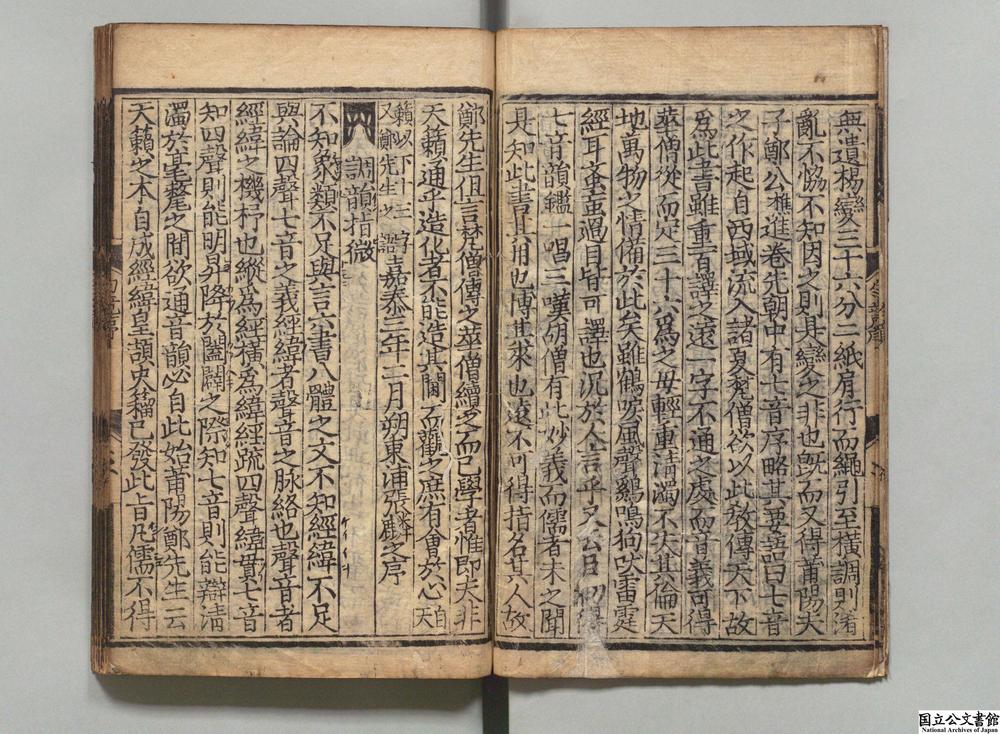 無遺楊變三十六分二紙肩行而繩引至橫調則淆
亂不恊不知因之則是變之非也既而又得莆陽夫
子鄭公樵進卷先朝中有七音序略其要語曰七音
之作起自西域流入諸夏梵僧欲以此教傳天下故
爲此書雖重百譯之遠一字不通之處而音義可得
華僧從而定三十六爲之母輕重清濁不失其倫天
地萬物之情備於此矣雖鶴唳風聲鷄鳴狗吠雷霆
經耳蚉䖟過目皆可譯也況於人言乎又公曰初得
七音韻鑑一唱三嘆胡僧有此妙義而儒者未之聞
是知此書其用也博其來也遠不可得指名其人故
鄭先生但言梵僧傳之華僧續之而已學者惟即夫非
天籟通乎造化者不能造其閫而觀之庶有會於心自天
籟以下十三字
又鄭先生之語嘉泰三年二月朔東浦張麟之序
調韻指微
不知象類不足與言六書八體之文不知經緯不足
與論四聲七音之義經緯者聲音之脉絡也聲音者
經緯之機杼也縱爲經橫爲緯經疏四聲緯貫七音
知四聲則能明昇降於闔闢之際知七音則能辯清
濁於毫釐之間欲通音韻必自此始莆陽鄭先生云
天籟之本自成經緯皇頡史籀已發此旨凡儒不得
国立公文書館
National Archives of Japan